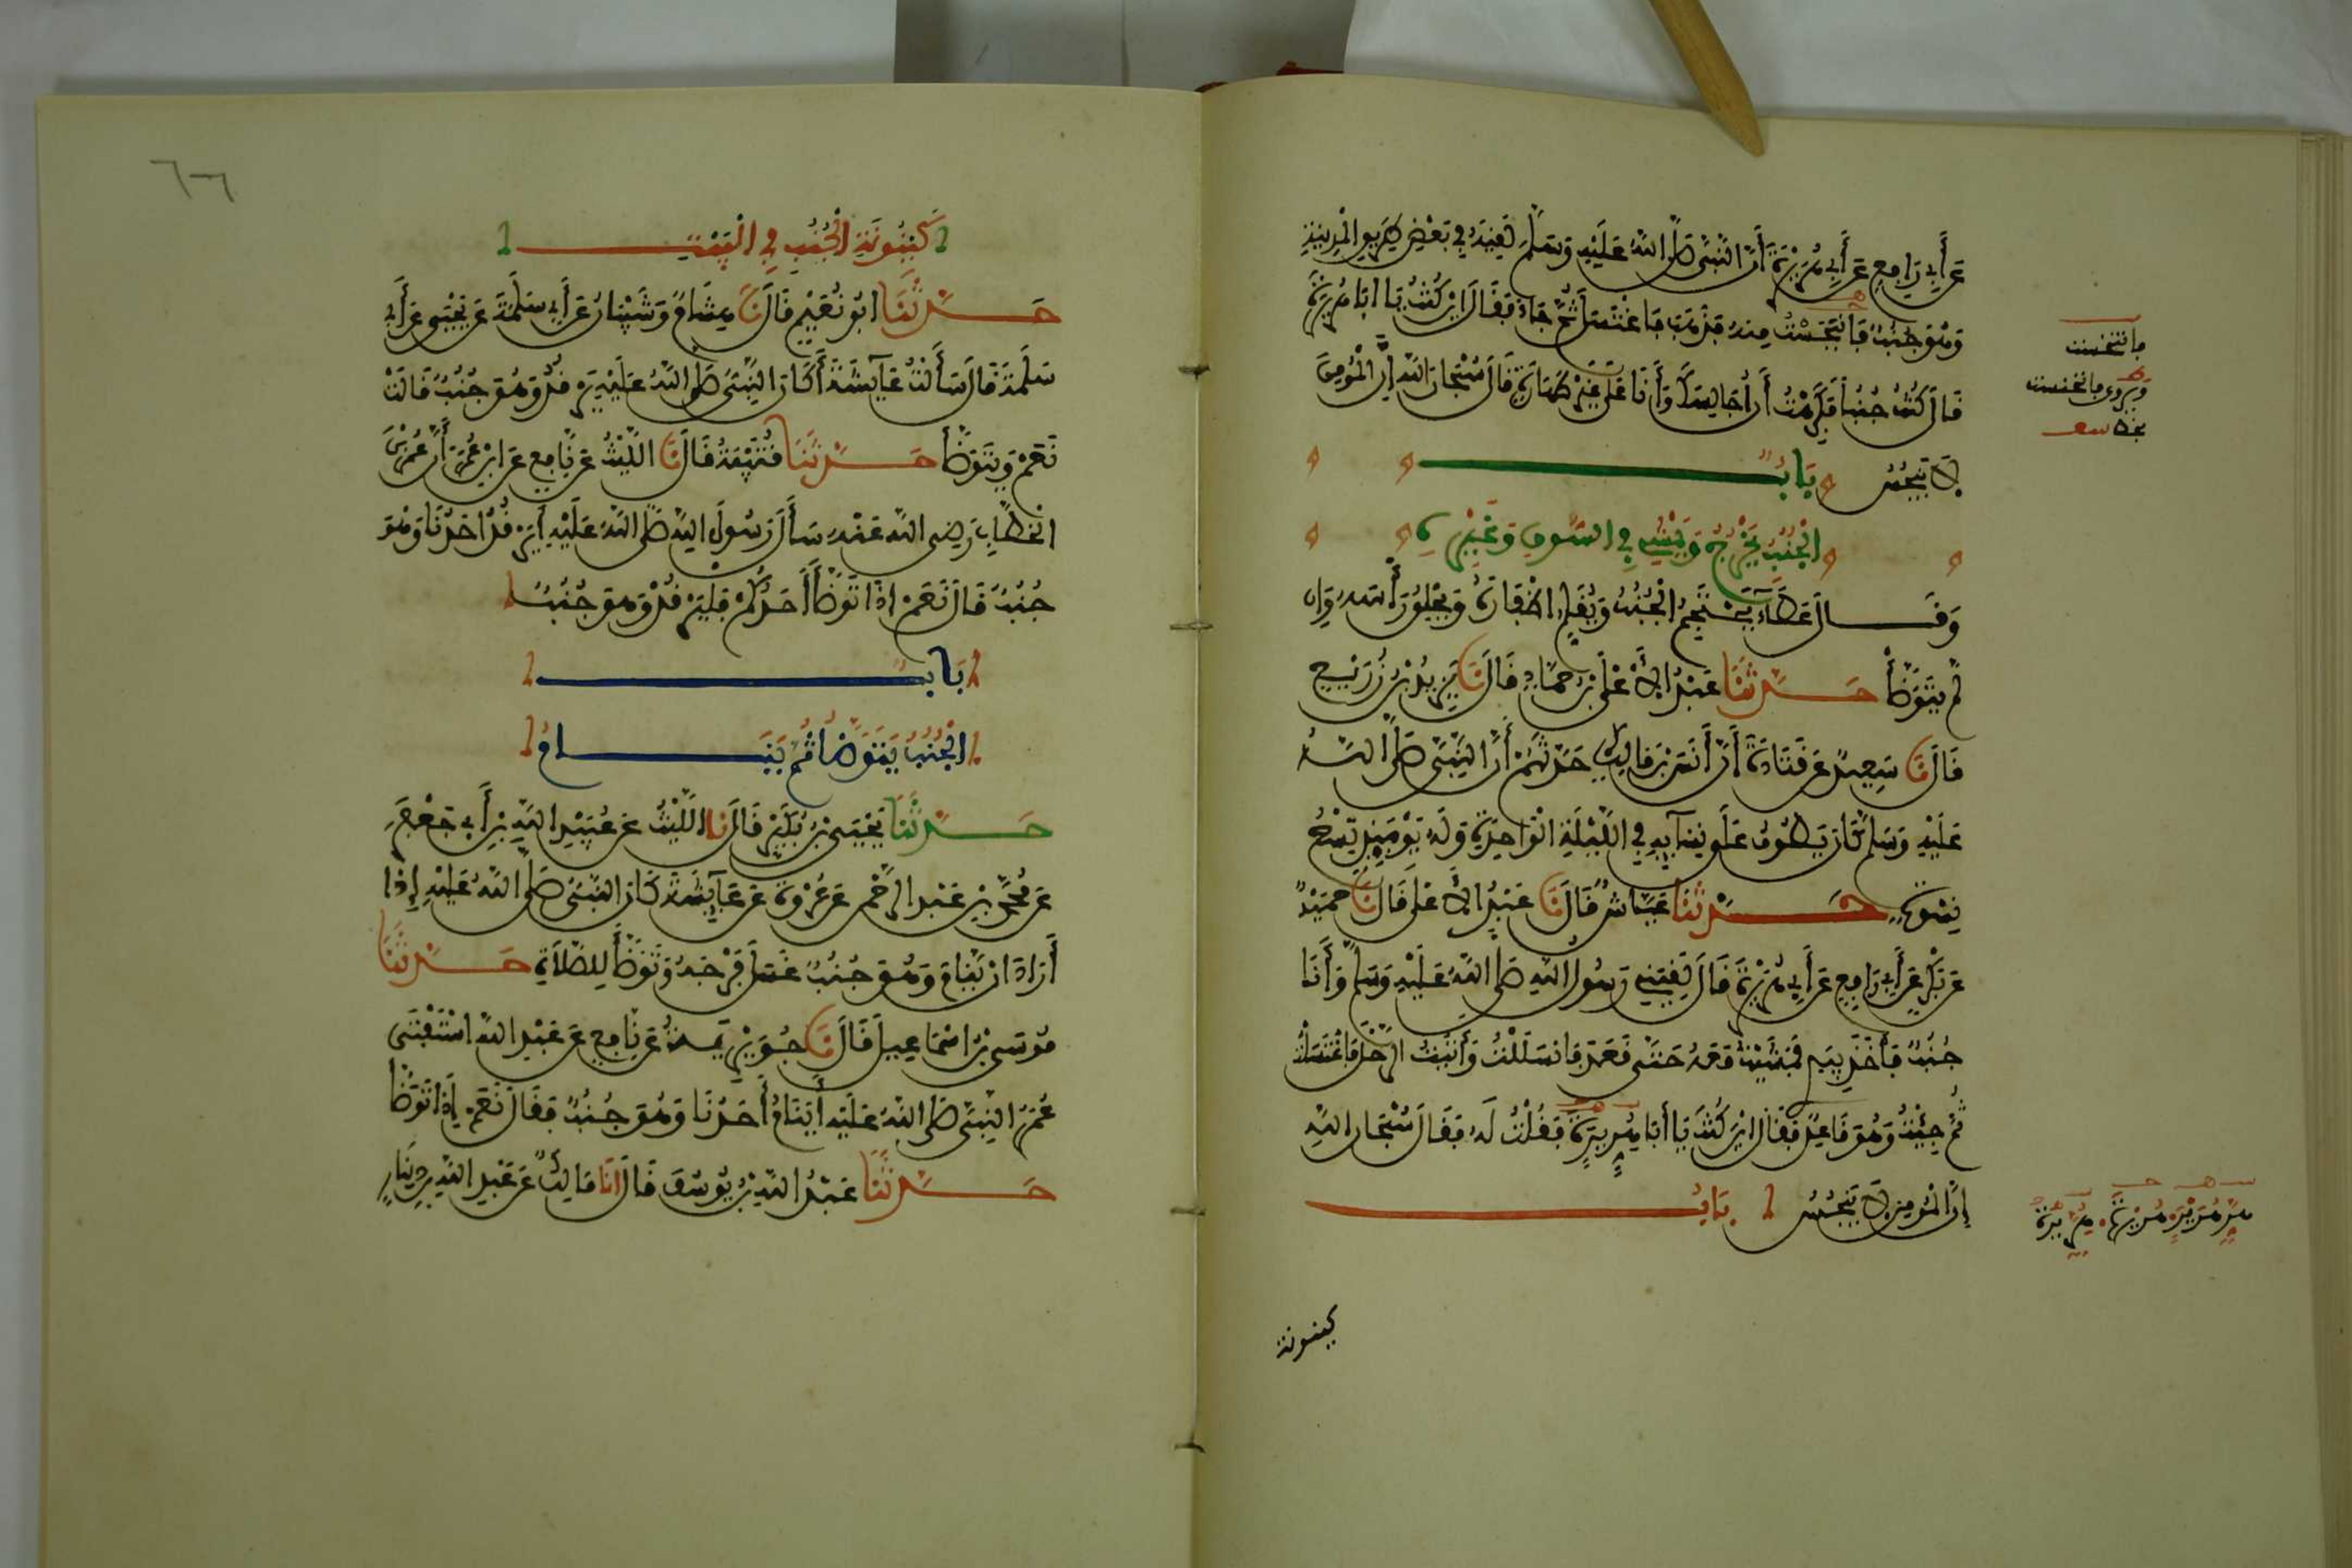 عَن أَبِي رَافِعٍ عَن أَبِي هُرَيْرَةَ أَنَّ النَّبِيَّ صَلَّى اللَّهُ عَلَيْهِ وَسَلَّمَ لَقِيَهُ فِي بَعْضِ طَرِيقِ الْمَدِينَةِ
وَهُوَ جُنُبٌ فَانْبَجَسْتُ مِنْهُ فَذَهَبَ فَاغْتَسَلَ ثُمَّ جَاءَ فَقَالَ أَيْنَ كُنْتَ يَا أَبَا هُرَيْرَةَ
قَالَ كُنْتُ جُنُباً فَكَرِهْتُ أَنْ أُجَالِسَكَ وَأَنَا عَلَى غَيْرِ طَهَارَةٍ قَالَ سُبْحَانَ اللَّهِ إِنَّ الْمُؤْمِنَ
لَا يَنْجُسُ بَابٌ
الْجُنُبُ يَخْرُجُ وَيَمْشِي فِي السُّوقِ وَغَيْرِهِ
وَقَالَ عَطَاءٌ يَحْتَجِمُ الْجُنُبُ وَيُقَلِّمُ اظْفَارَهُ وَيَحْلِقُ رَأْسَهُ وَإِن
لَمْ يَتَوَضَّأْ حَدَّثَنَا عَبْدُ الْأَعْلَى بْنُ حَمَّادٍ قَالَ نَا يَزِيدُ بْنُ زُرَيْعٍ
قَالَ نَا سَعِيدٌ عَن قَتَادَةَ أَنَّ أَنَسَ بْنَ مَالِكٍ حَدَّثَهُمْ أَنَّ النَّبِيَّ صَلَّى اللَّهُ
عَلَيْهِ وَسَلَّمَ كَانَ يَطُوفُ عَلَى نِسَآئِهِ فِي اللَّيْلَةِ الْوَاحِدَةِ وَلَهُ يَوْمَئِذٍ تِسْعُ
نِسْوَةٍ حَدَّثَنَا عَيَّاشٌ قَالَ نَا عَبْدُ الْأَعْلَى قَالَ نَا حُمَيْدٌ
عَن بَكْرٍ عَن أَبِي رَافِعٍ عَن أَبِي هُرَيْرَةَ قَالَ لَقِيَنِي رَسُولُ اللَّهِ صَلَّى اللَّهُ عَلَيْهِ وَسَلَّمَ وَأَنَا
جُنُبٌ فَأَخَذَ بِيَدِي فَمَشَيْتُ مَعَهُ حَتَّى قَعَدَ فَانْسَلَلْتُ وَأَتَيْتُ الرَّحْلَ فَاغْتَسَلْتُ
ثُمَّ جِئْتُ وَهُوَ قَاعِدٌ فَقَالَ أَيْنَ كُنْتَ يَا أَبَا هُرَيْرَةَ فَقُلْتُ لَهُ فَقَالَ سُبْحَانَ اللَّهِ
إِنَّ الْمُؤْمِنَ لَا يَنْجُسُ بَابُ
فانتجست
ويروى فانخنست
بخط سعـ
كينونة
٦٦
كَيْنُونَةِ الْجُنُبِ فِي الْبَيْتِ
حَدَّثَنَا ابُو نُعَيْمٍ قَالَ نَا هِشَامٌ وَشَيْبَانُ عَن أَبِي سَلَمَةَ عَن يَحْيَى عَن أَبِي
سَلَمَةَ قَالَ سَأَلْتُ عَآئِشَةَ أَكَانَ النَّبِيُّ صَلَّى اللَّهُ عَلَيْهِ يَرْقُدُ وَهُوَ جُنُبٌ قَالَتْ
نَعَمْ وَيَتَوَضَّأُ حَدَّثَنَا قُتَيْبَةُ قَالَ نَا اللَّيْثُ عَن نَّافِعٍ عَنِ ابْنِ عُمَرَ أَنَّ عُمَرَ بْنَ
الْخَطَّابِ رَضِيَ اللَّهُ عَنْهُ سَأَلَ رَسُولَ اللَّهِ صَلَّى اللَّهُ عَلَيْهِ أَيَرْقُدُ احَدُنَا وَهْوَ
جُنُبٌ قَالَ نَعَمْ اذَا تَوَضَّأَ أَحَدُكُمْ فَلْيَرْقُدْ وَهُوَ جُنُبٌ
بَابُ
الْجُنُبُ يَتَوَضَّأُ ثُمَّ يَنَامُ
حَدَّثَنَا يَحْيَى بْنُ بُكَيْرٍ قَالَ نَا اللَّيْثُ عَن عُبَيْدِ اللَّهِ بْنِ أَبِي جَعْفَرٍ
عَن مُحَمَّدِ بْنِ عَبْدِ الرَّحْمَنِ عَن عُرْوَةَ عَن عَآئِشَةَ كَانَ النَّبِيُّ صَلَّى اللَّهُ عَلَيْهِ إِذَا
أَرَادَ ان يَّنَامَ وَهُوَ جُنُبٌ غَسَلَ فَرْجَهُ وَتَوَضَّأَ لِلصَّلَاةِ حَدَّثَنَا
مُوسَى بْنُ اسْمَاعِيلَ قَالَ نَا جُوَيْرِيَةُ عَن نَّافِعٍ عَن عَبْدِ اللَّهِ اسْتَفْتَى
عُمَرُ النَّبِيَّ صَلَّى اللَّهُ عَلَيْهِ أَيَنَامُ أَحَدُنَا وَهُوَ جُنُبٌ فَقَالَ نَعَمْ إِذَا تَوَضَّأَ
حَدَّثَنَا عَبْدُ اللَّهِ بْنُ يُوسُفَ قَالَ انَا مَالِكٌ عَن عَبْدِ اللَّهِ بْنِ دِينَارٍ